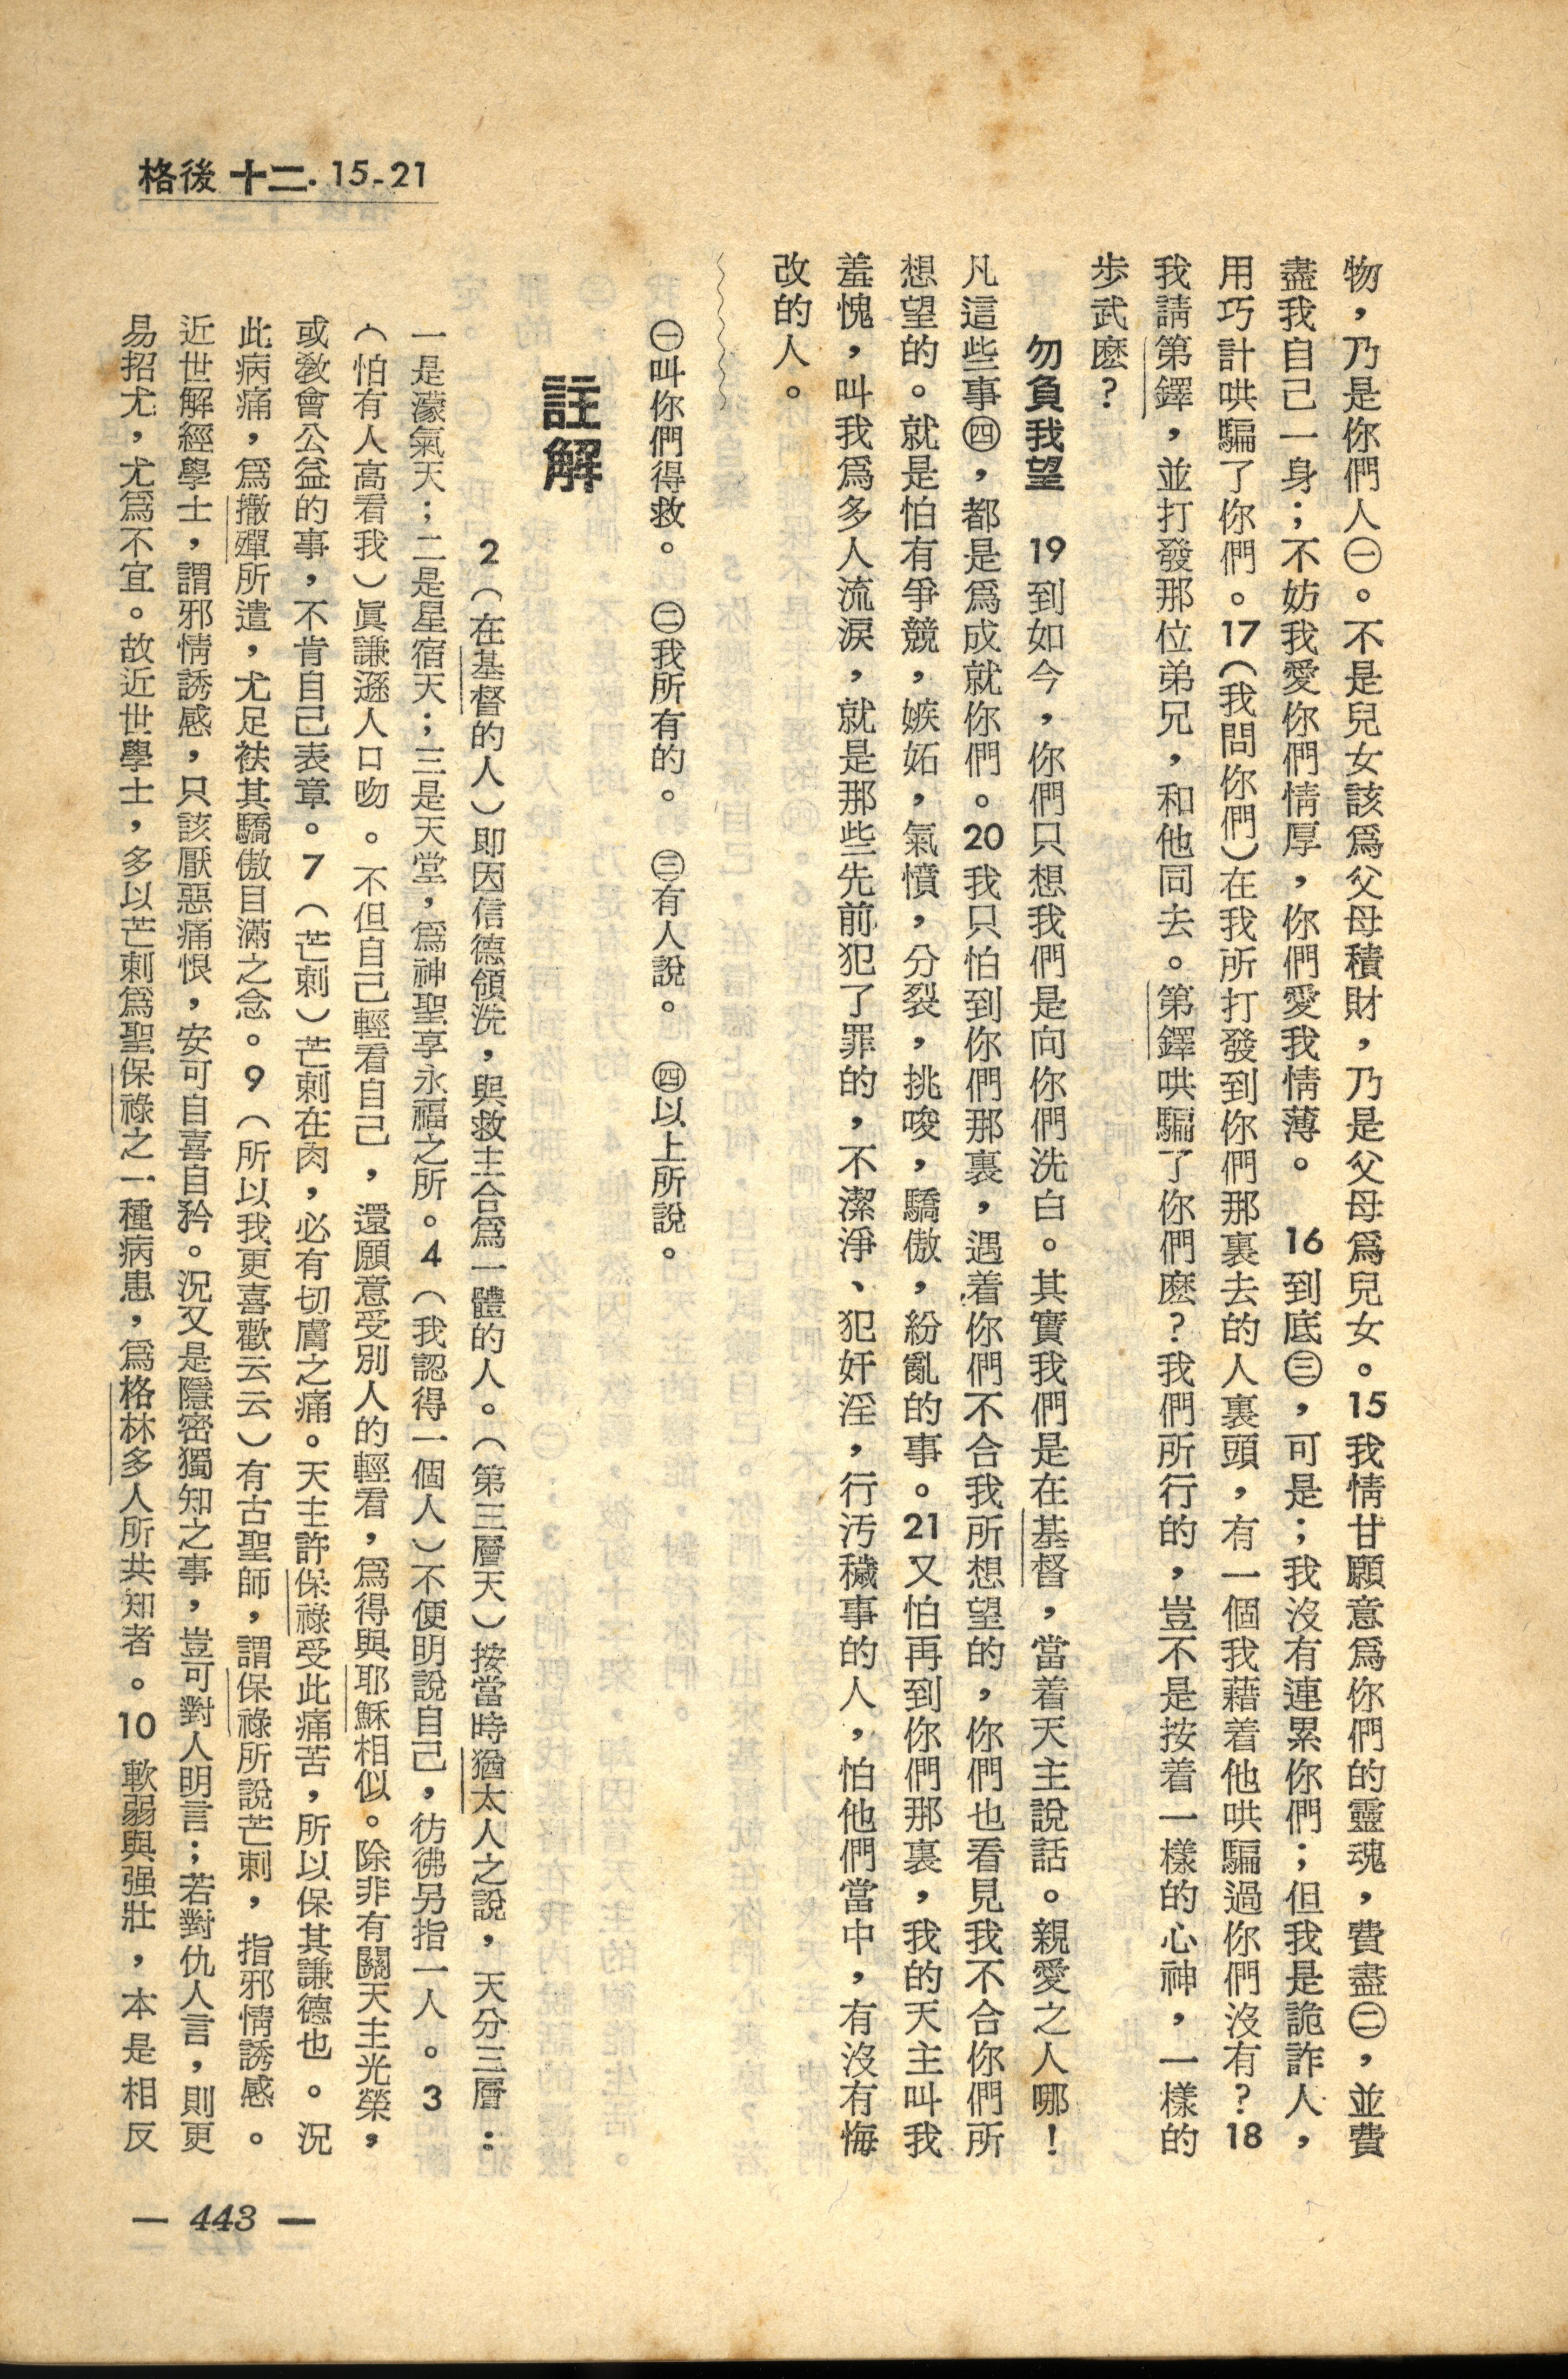 格後十二.15-21
物，乃是你們人㊀。不是兒女該爲父母積財，乃是父母爲兒女。15我情甘願意爲你們的靈魂，費盡㊁，並費
盡我自己一身；不妨我愛你們情厚，你們愛我情薄。　16到底㊂，可是；我沒有連累你們；但我是詭詐人，
用巧計哄騙了你們。17（我問你們）在我所打發到你們那裏去的人裏頭，有一個我藉着他哄騙過你們沒有？18
我請第鐸，並打發那位弟兄，和他同去。第鐸哄騙了你們麽？我們所行的，豈不是按着一樣的心神，一樣的
步武麽？
勿負我望　19到如今，你們只想我們是向你們洗白。其實我們是在基督，當着天主說話。親愛之人哪！
凡這些事㊃，都是爲成就你們。20我只怕到你們那裏，遇着你們不合我所想望的，你們也看見我不合你們所
想望的。就是怕有爭競，嫉妬，氣憤，分裂，挑唆，驕傲，紛亂的事。21又怕再到你們那裏，我的天主叫我
羞愧，叫我爲多人流淚，就是那些先前犯了罪的，不潔淨、犯奸淫，行汚穢事的人，怕他們當中，有沒有悔
改的人。
㊀叫你們得救。　㊁我所有的。　㊂有人說。　㊃以上所說。
註解
2（在基督的人）即因信德領洗，與救主合爲一體的人。（第三層天）按當時猶太人之說，天分三層：
一是濛氣天；二是星宿天；三是天堂，爲神聖享永福之所。4（我認得一個人）不便明說自己，彷彿另指一人。3
（怕有人高看我）眞謙遜人口吻。不但自己輕看自己，還願意受別人的輕看，爲得與耶穌相似。除非有關天主光榮，
或敎會公益的事，不肯自己表章。7（芒刺）芒刺在肉，必有切膚之痛。天主許保祿受此痛苦，所以保其謙德也。況
此病痛，爲撒殫所遣，尤足祛其驕傲自滿之念。9（所以我更喜歡云云）有古聖師，謂保祿所說芒刺，指邪情誘感。
近世解經學士，謂邪情誘感，只該厭惡痛恨，安可自喜自矜。況又是隱密獨知之事，豈可對人明言；若對仇人言，則更
易招尤，尤爲不宜。故近世學士，多以芒刺爲聖保祿之一種病患，爲格林多人所共知者。10軟弱與强壯，本是相反
— 443 —